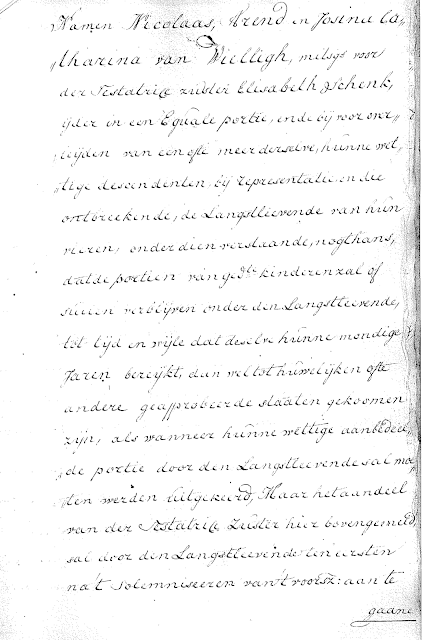 Namen Nicolaas, Arend en Josina Ca„
„tharina van Wielligh, mitsgs voor
der Testatrice zuster Elisabeth Schenk,
ijder in een Equale portie, ende bij voor over„
leijden van een ofte meer derselve, hunne wet„
„tige descendenten, bij representatie en die
ontbreekende, de Langstleevende van hun
vieren, onder dien verstaande, nogthans,
dat de portien van ged:te kinderen zal of
sullen verblijven onder den Langstleevende,
tot tijd en wijle dat deselve hunne mondige
Jaren bereijkt, dan wel tot huwelijken ofte
andere geapprobeerde staaten gekoomen
zijn, als wanneer hunne wettige aanbedeel„
„de portie door den Langstleevende sal moe„
ten werden uitgekeerd, Maar het aandeel
van der Testatrice Zuster hier bovengemeld,
sal door den Langstleevende ten eersten
na't Solemniseeren van't voorsz: aan te
gaane